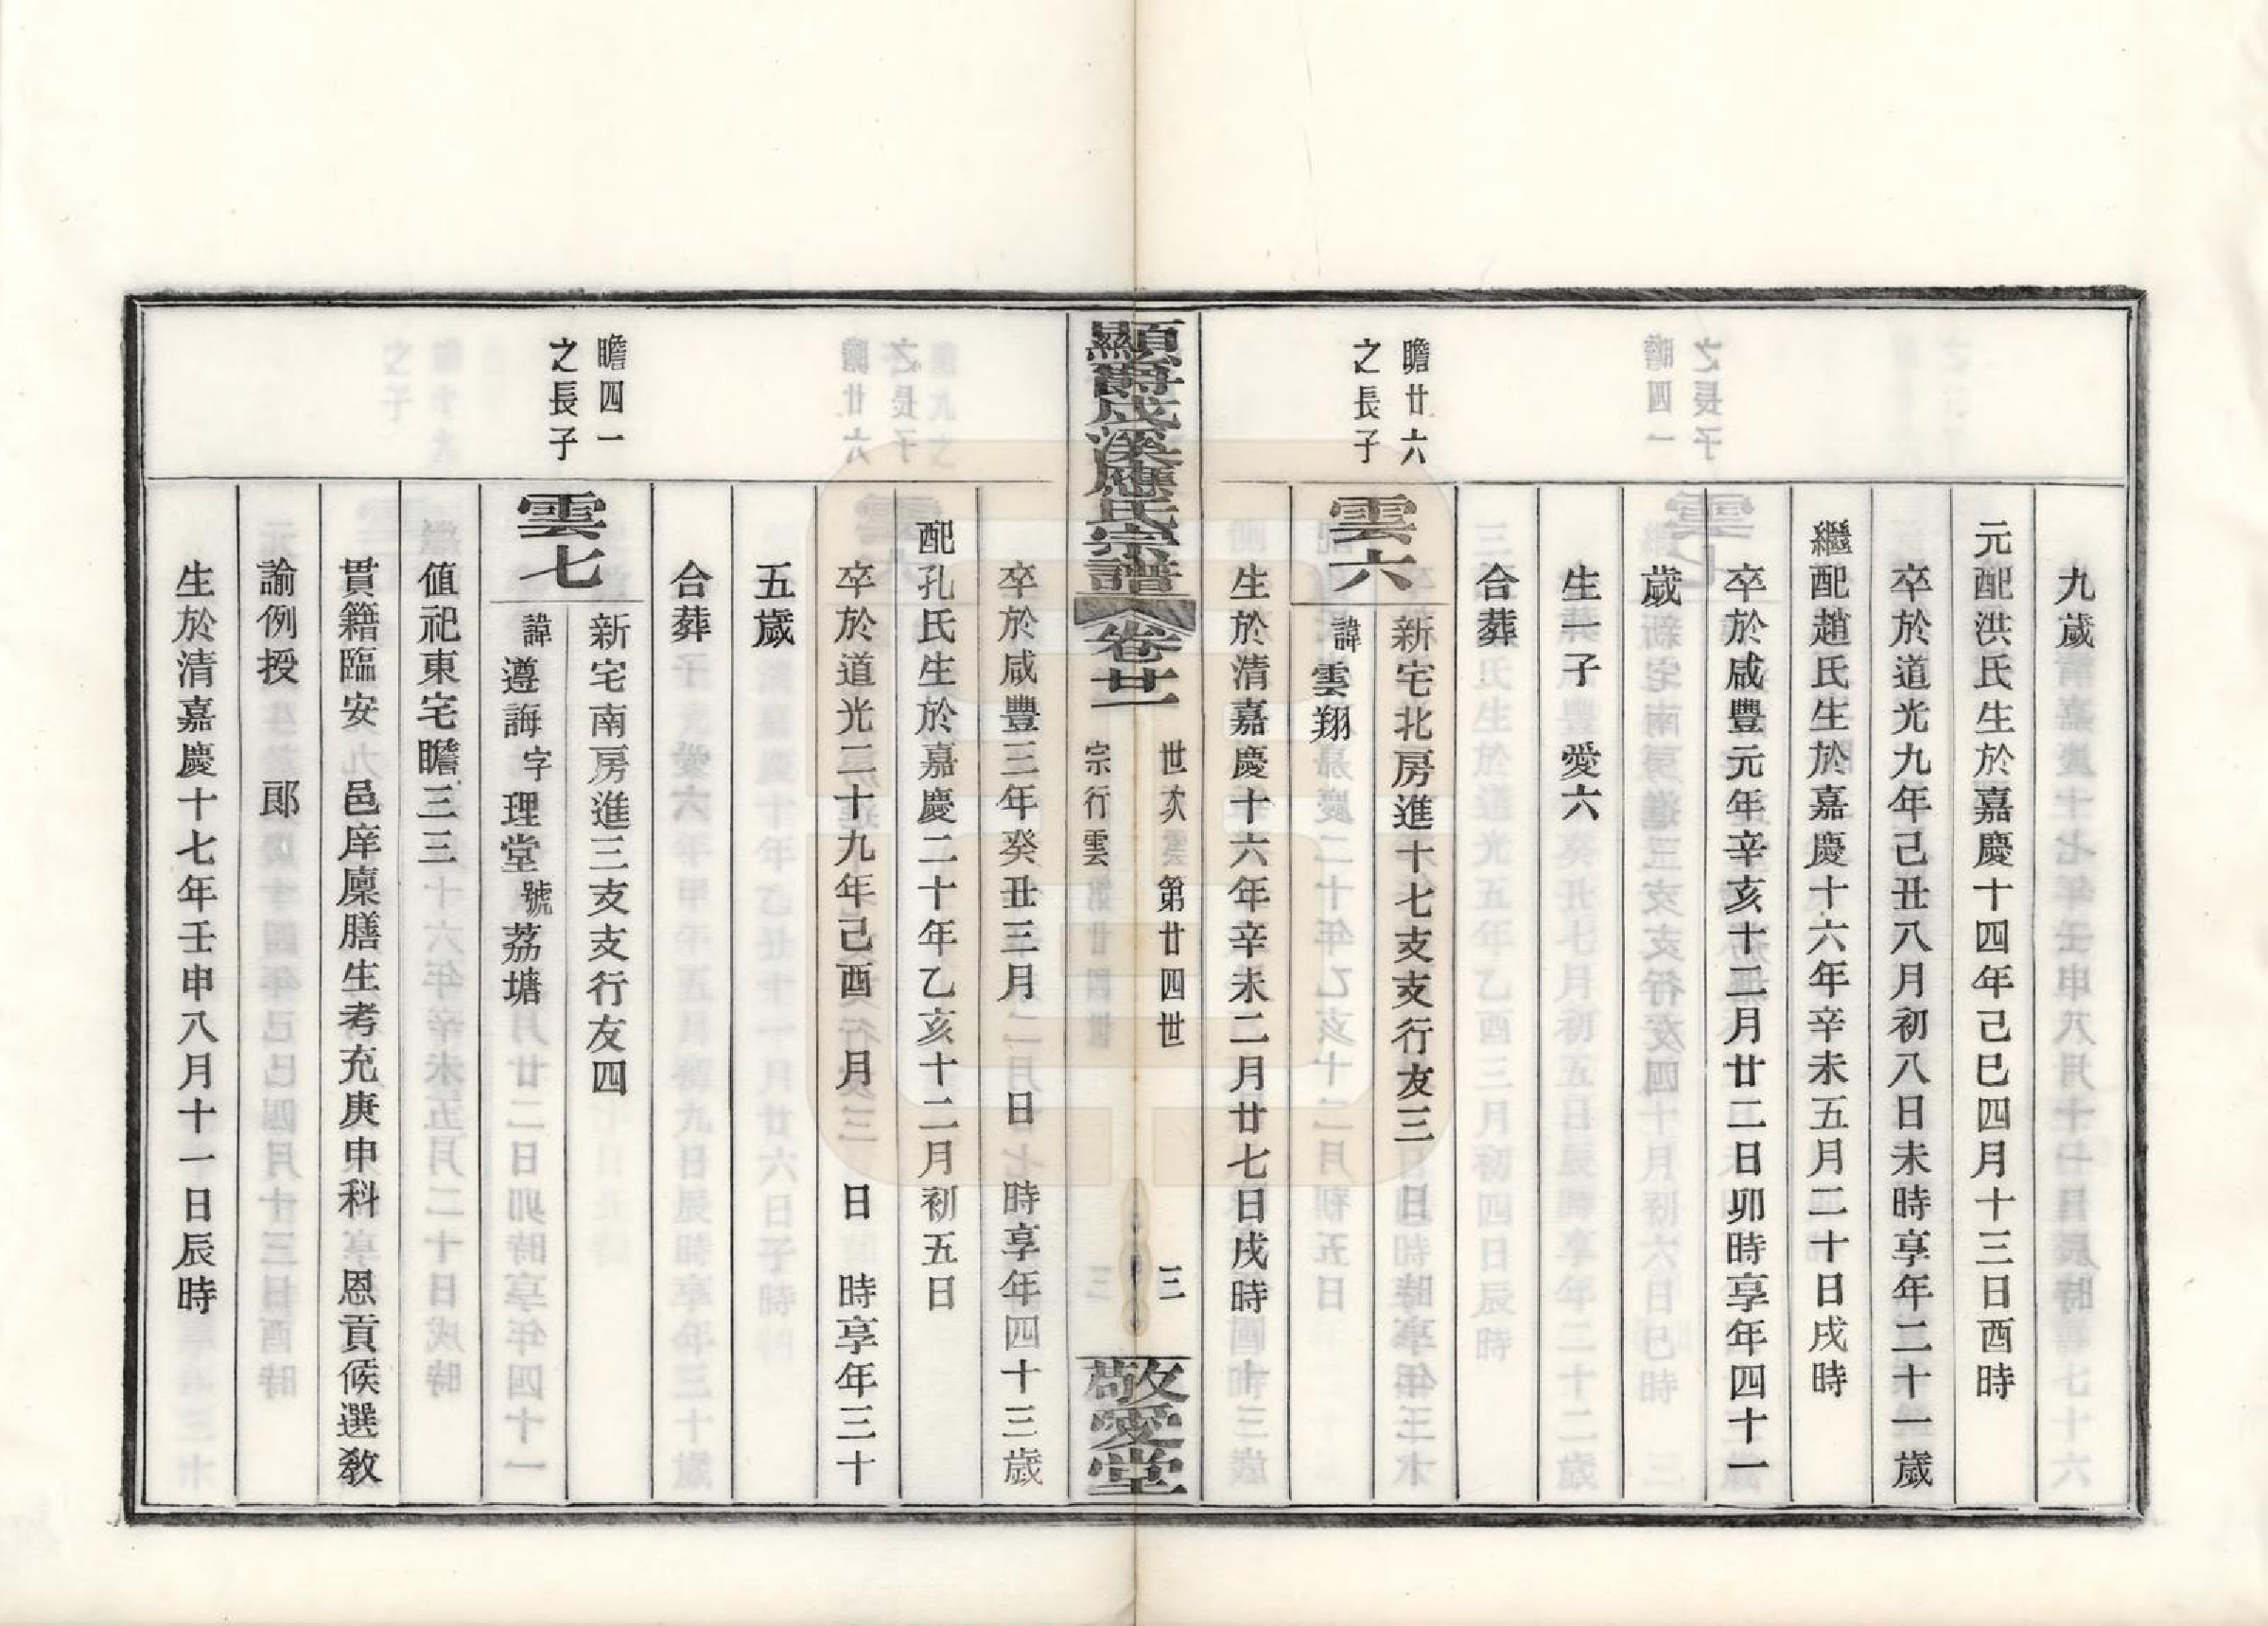 九歲
元配洪氏生於嘉慶十四年己巳四月十三日酉時
卒於道光九年己丑八月初八日未時享年二十一歲
繼配趙氏生於嘉慶十六年辛未五月二十日戌時
卒於咸豐元年辛亥十二月廿二日卯時享年四十一
歲
生一子 愛六
合葬
瞻廿六
之長子
雲六
新宅北房進十七支支行友三
諱雲翔
生於清嘉慶十六年辛未二月廿七日戌時
顯爵成溪應氏宗譜 卷廿一
世次 第廿四世 三
宗行雲
敬愛堂
卒於咸豐三年癸丑三月 日 時享年四十三歲
配孔氏生於嘉慶二十年乙亥十二月初五日
卒於道光二十九年己酉 月 日 時享年三十
五歲
合葬
瞻四一
之長子
雲七
新宅南房進三支支行友四
諱遵誨字理堂號荔塘
值祀東宅瞻三三
貫籍臨安 邑庠廩膳生考充庚申科 恩貢候選教
諭例授 郎
生於清嘉慶十七年壬申八月十一日辰時